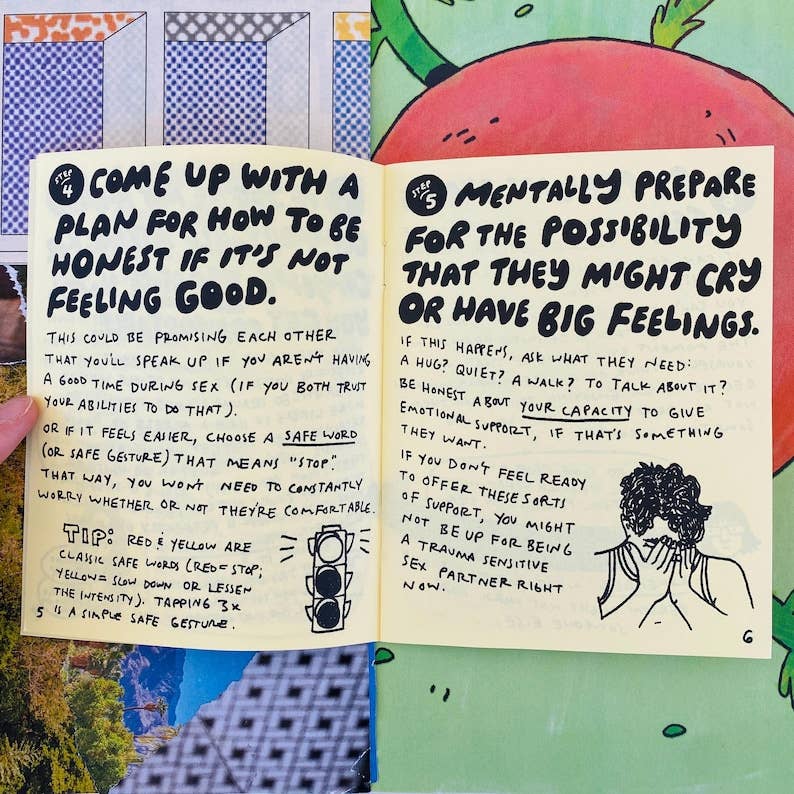 STEP 4 COME UP WITH A
PLAN FOR HOW TO BE
HONEST IF IT'S NOT
FEELING GOOD.
THIS COULD BE PROMISING EACH OTHER
THAT YOU'LL SPEAK UP IF YOU AREN'T HAVING
A GOOD TIME DURING SEX (IF YOU BOTH TRUST
YOUR ABILITIES TO DO THAT).
OR IF IT FEELS EASIER, CHOOSE A SAFE WORD
(OR SAFE GESTURE) THAT MEANS "STOP."
THAT WAY, YOU WON'T NEED TO CONSTANTLY
WORRY WHETHER OR NOT THEY'RE COMFORTABLE.
TIP: RED & YELLOW ARE
CLASSIC SAFE WORDS (RED=STOP;
YELLOW= SLOW DOWN OR LESSEN
THE INTENSITY). TAPPING 3X
IS A SIMPLE SAFE GESTURE.
5
STEP 5 MENTALLY PREPARE
FOR THE POSSIBILITY
THAT THEY MIGHT CRY
OR HAVE BIG FEELINGS.
IF THIS HAPPENS, ASK WHAT THEY NEED:
A HUG? QUIET? A WALK? TO TALK ABOUT IT?
BE HONEST ABOUT YOUR CAPACITY TO GIVE
EMOTIONAL SUPPORT, IF THAT'S SOMETHING
THEY WANT.
IF YOU DON'T FEEL READY
TO OFFER THESE SORTS
OF SUPPORT, YOU MIGHT
NOT BE UP FOR BEING
A TRAUMA SENSITIVE
SEX PARTNER RIGHT
NOW.
6